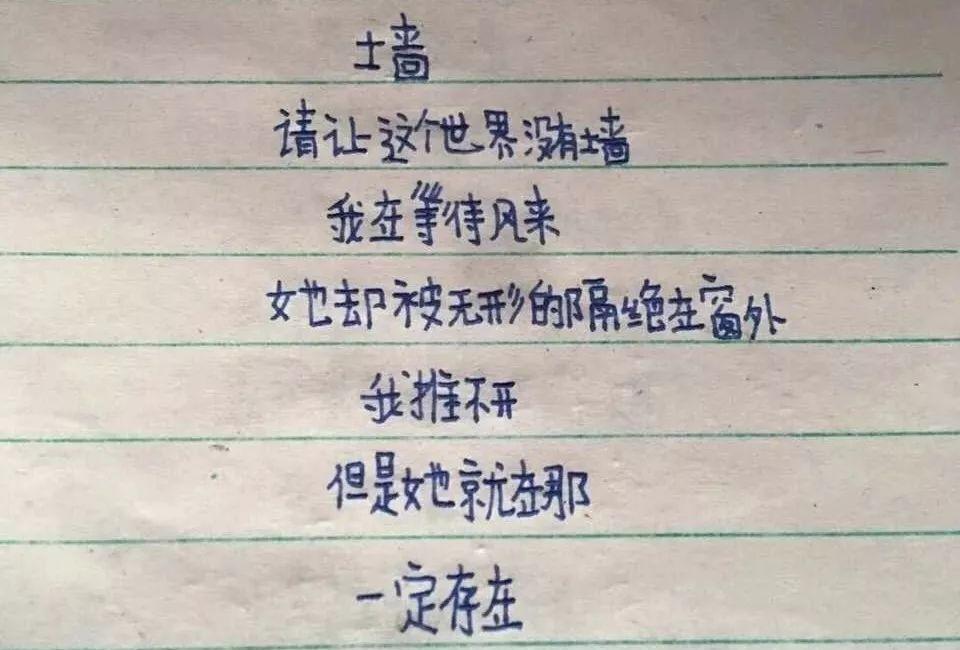 墙
请让这个世界没有墙
我在等待风来
她却被无形的隔绝在窗外
我推不开
但是她就在那
一定存在